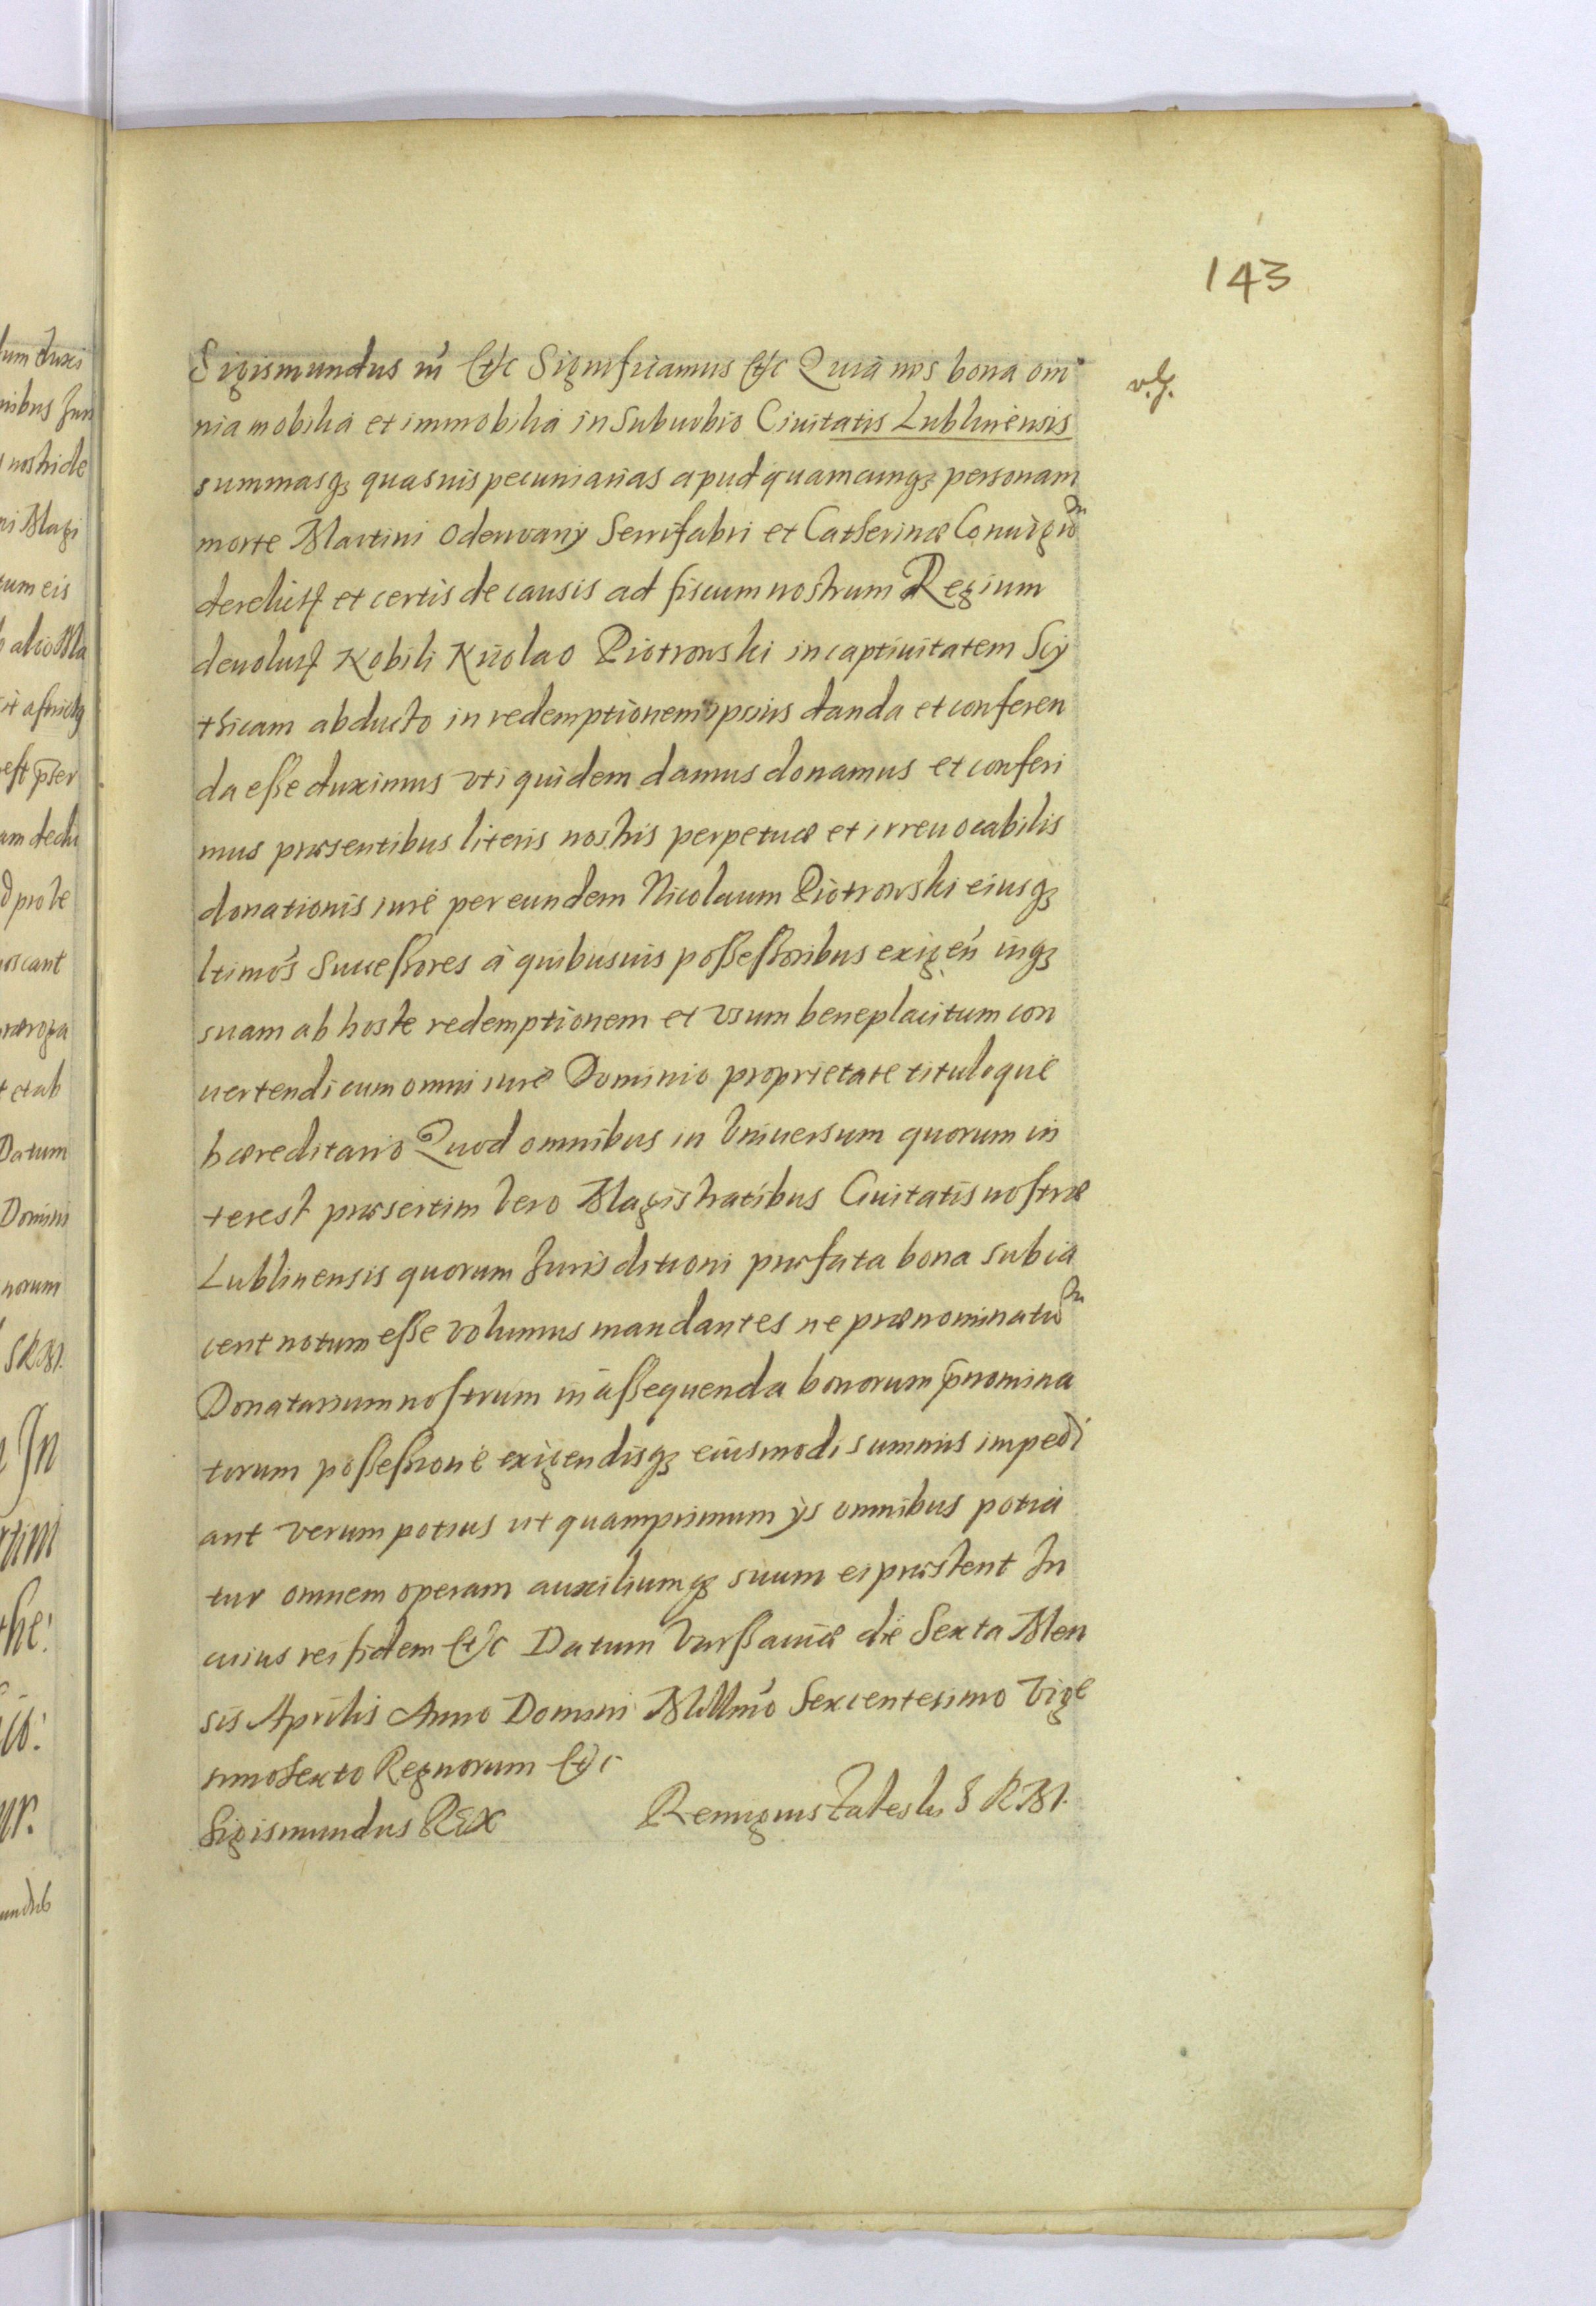 143
Sigismundus iii &c Significamus &c Quia nos bona om
nia mobilia et immobilia in Suburbio Ciuitatis Lublinensis
summasq; quasuis pecuniarias apud quamcunq; personam
morte Martini Oderwany Serrifabri et Catherinæ Coniugum
derelict et certis de causis ad fiscum nostrum Regium
deuolut Nobili Nicolao Piotrowski in captiuitatem Scy
thicam abducto in redemptionem ipsius danda et conferen
da esse duximus vti quidem damus donamus et conferi
mus præsentibus literis nostris perpetuæ et irreuocabilis
donationis iure per eundem Nicolaum Piotrowski eiusq;
ltimos Successores à quibusuis possessoribus exigen inq;
suam ab hoste redemptionem et vsum beneplacitum con
uertendi cum omni iure Dominio proprietate tituloque
hæreditario Quod omnibus in Vniuersum quorum in
terest præsertim Vero Magistratibus Ciuitatis nostræ
Lublinensis quorum Jurisditioni præfata bona subia
cent notum esse volumus mandantes ne prænominatum
Donatarium nostrum in assequenda bonorum pnomina
torum possessione exigendisq; eiusmodi summis impedi
ant verum potius ut quamprimum ijs omnibus potia
tur omnem operam auxiliumq; suum ei præstent In
cuius rei fidem &c Datum Varssauiæ die Sexta Men
sis Aprilis Anno Domini Millmo Sexcentesimo Vige
simosexto Regnorum &c
Sigismundus REX Remigius Zaleski S R M.